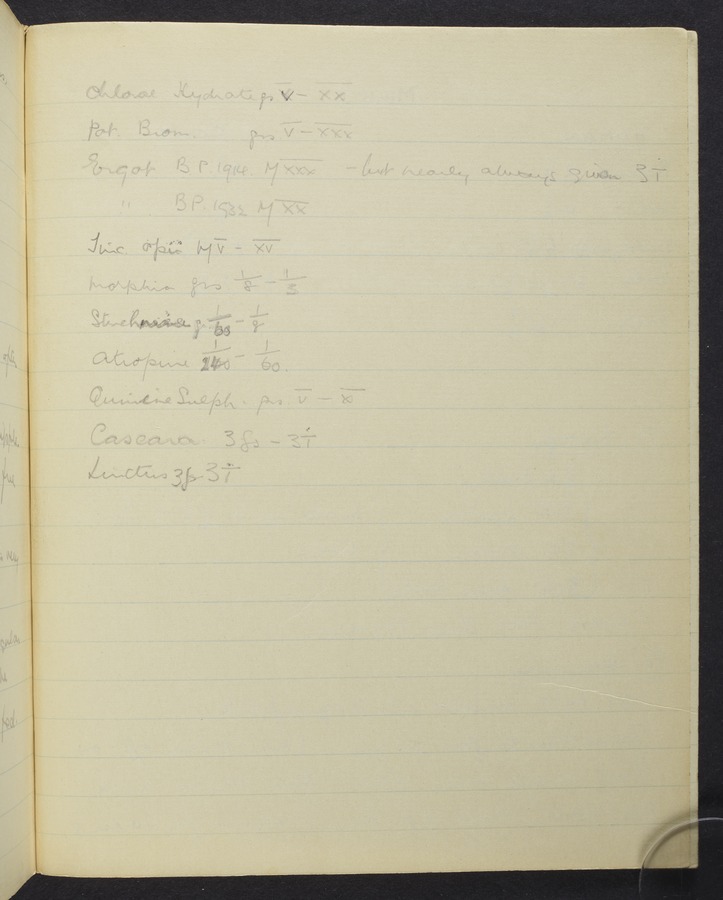 Chloral Hydrate grs V - XX
Pot. Brom. grs V - XXX
Ergot B P. 1914. M XXX - but nearly always given ʒ i
" B P. 1932 M XX
Tinc. opii M V - XV
Morphia grs 1/8 - 1/3
Strychnine gr 1/60 - 1/8
Atropine 1/240 - 1/60.
Quinine Sulph. grs. V - X
Cascara. ʒ ss - ʒ i
Linctus ʒ ss - ʒ i